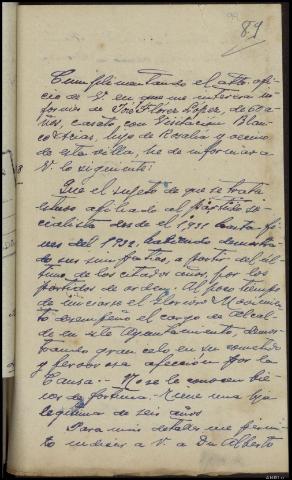 89
Cumplimentando el atto. ofi-
cio de V. en que me interesa in-
forme de José Flórez López, de
años, casado con Visitación Blan-
co, hijo de Rosalía y vecino
de esta villa, he de informar a
V. lo siguiente:
Que el sujeto de que se trata
estuvo afiliado al partido so-
cialista desde el 1931 hasta fi-
nes del 1932, habiendo demostra-
do sus simpatías, a partir del úl-
timo de los citados años, por los
partidos de orden. Al poco tiempo
de iniciarse el Glorioso Movimien-
to desempeñó el cargo de Alcal-
de en este Ayuntamiento, demos-
trando gran celo en su cometido
y fervorosa afección por la
Causa.- No se le conocen bie-
nes de fortuna. Tiene una hija
legítima de seis años
Para más detalles me permi-
to indicar a V. a Dn. Alberto